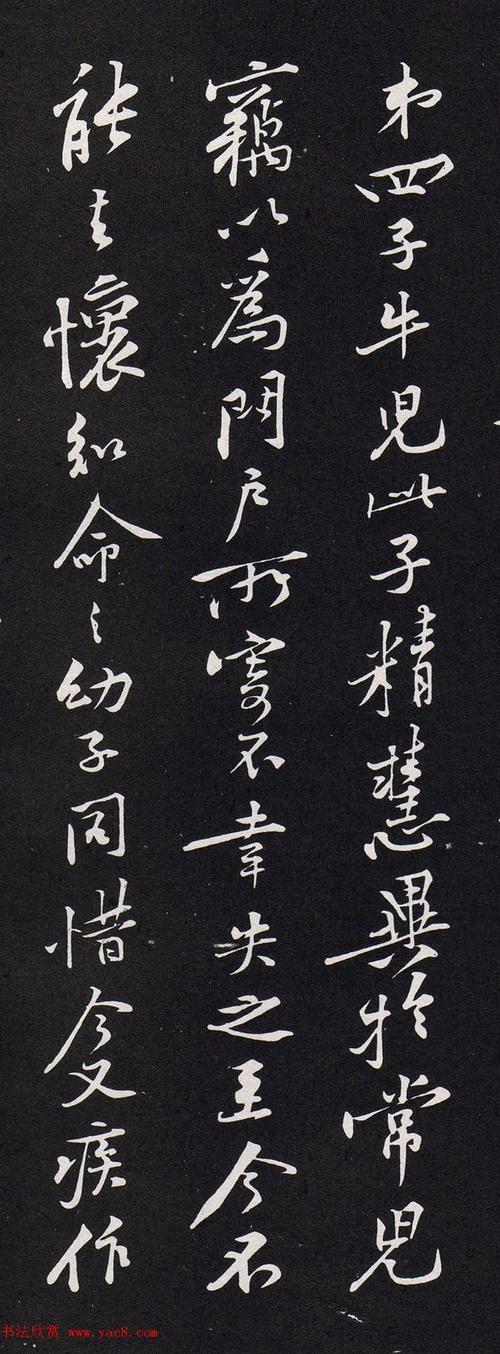 第四子牛兒此子精慧異於常兒
竊以為門戶所寄不幸失之至今不
能去懷知命之幼子同惜今又疾作
书法欣赏 www.yac8.com